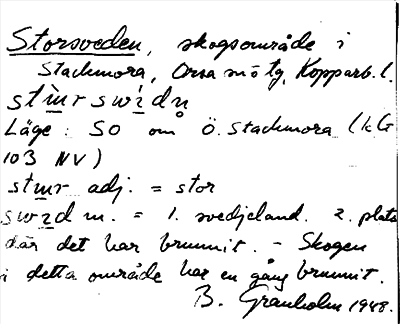 Storsveden, skogsområde i
Stackmora, Orsa
Läge: SO om Ö. Stackmora (kG
103 NV)
adj. = stor
m. = 1. svedjeland. 2. plats
där det har brunnit. – Skogen
i detta område har en gång brunnit.
B. Granholm 1948.